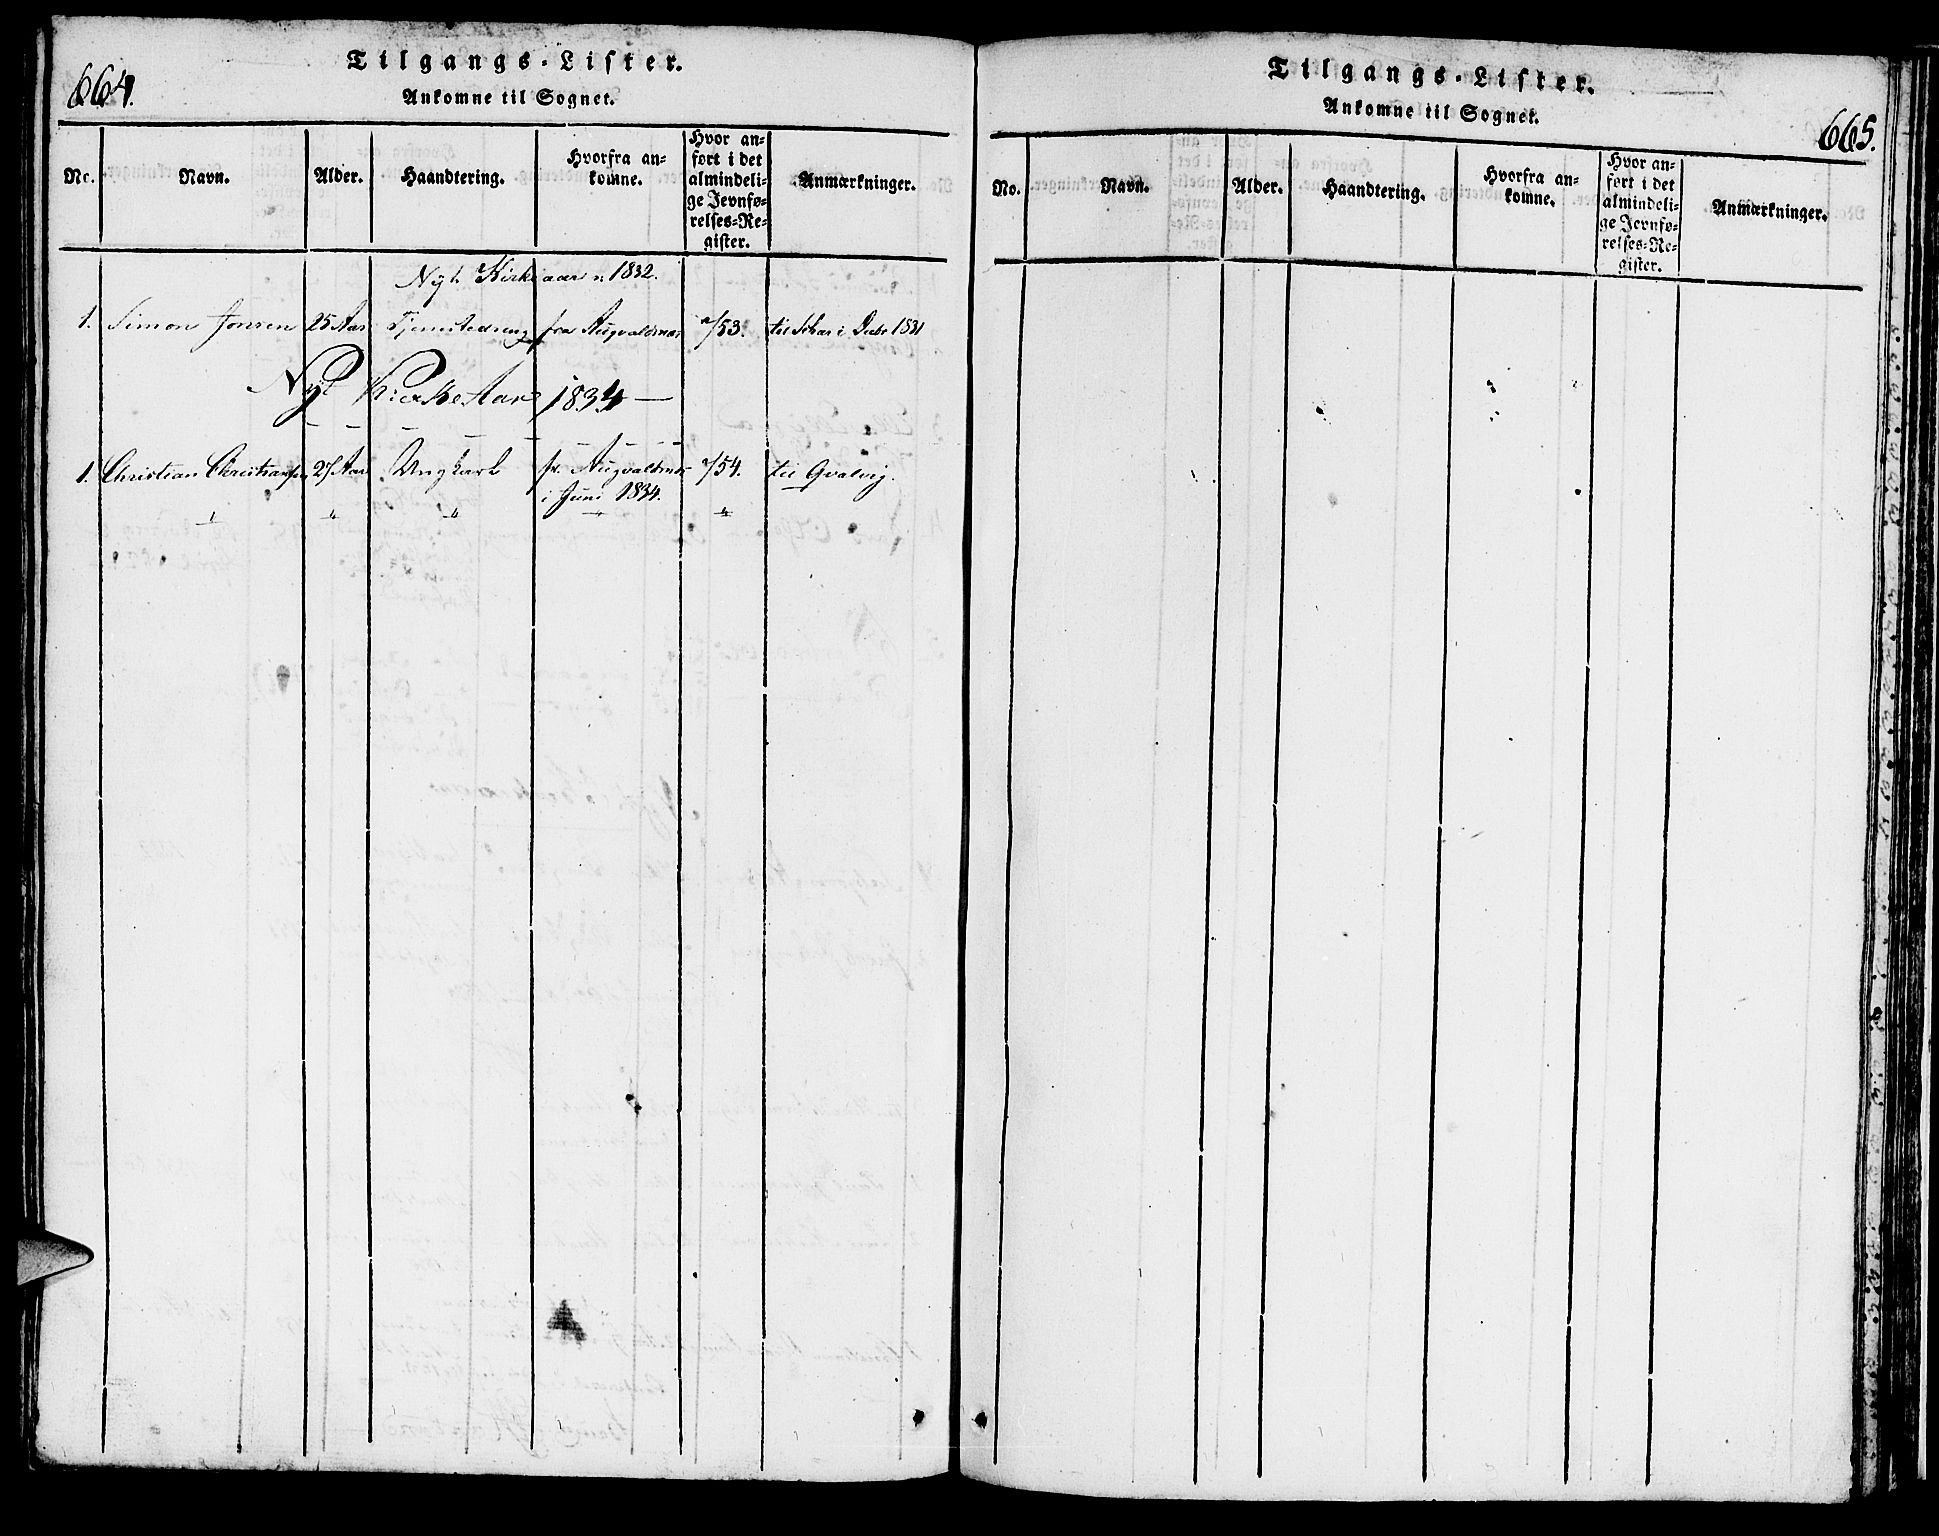 664.
Tilgangs-Lister.
Ankomne til Sognet.
No. Navn. Alder. Haandtering. Hvorfra ankomne. Hvor anført i det almindelige Jevnførelses-Register. Anmærkninger.
Nyt Kirkeaar 1832.
1. Simon Jonsen 25 Aar Tjenestedreng fra Augvaldsnæs /53. til Skaar i Decbr 1831
Nyt Kirke Aar 1834
1. Christian Christiansen 27 Aar Ungkarl fr. Augvaldsnæs /54. til Qvalvig.
i Juni 1834.
665.
Tilgangs-Lister.
Ankomne til Sognet.
No. Navn. Alder. Haandtering. Hvorfra ankomne. Hvor anført i det almindelige Jevnførelses-Register. Anmærkninger.